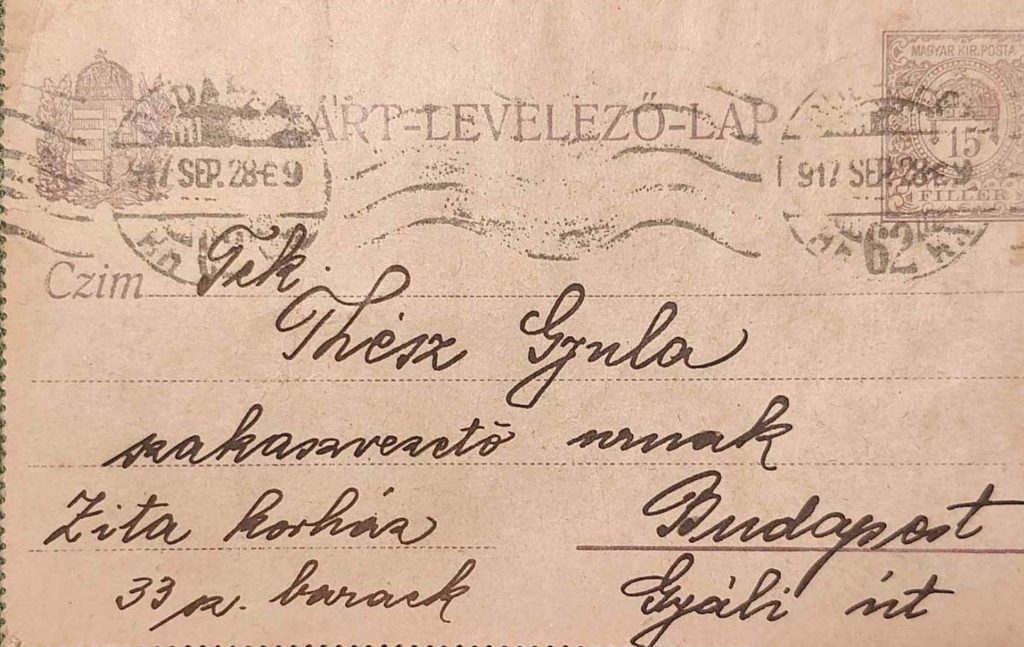 ZÁRT-LEVELEZŐ-LAP
MAGYAR KIR. POSTA
15
FILLÉR
917 SEP. 28-E 9
917 SEP. 28-E 9
62
Czim
Tek.
Thész Gyula
szakaszvezető urnak
Zita korház
Budapest
33 sz. barack
Gyáli út